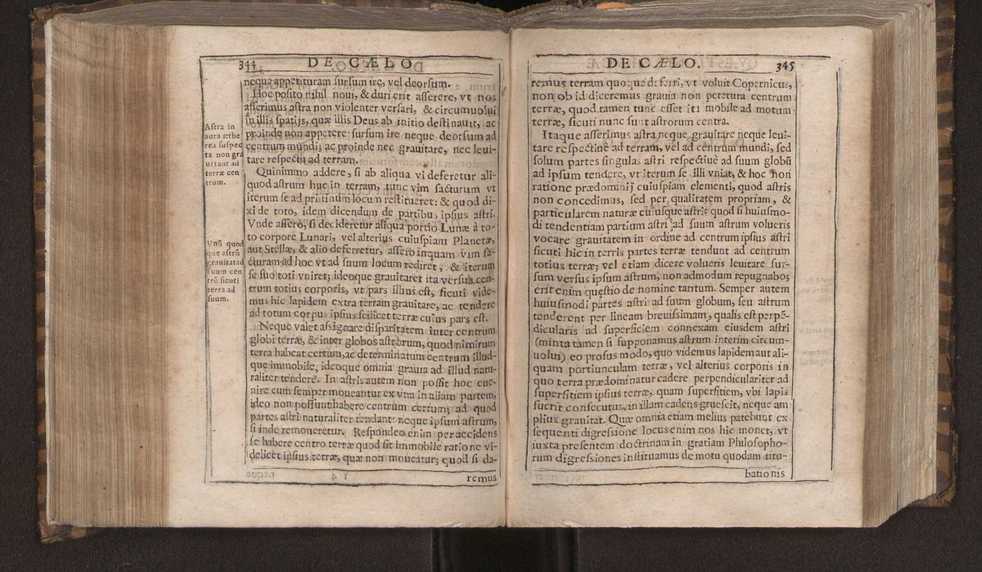 344
DE CÆLO
neque appetituram sursum ire, vel deorsum.
Hoc posito nihil noui, & duri erit asserere, vt nos
asserimus astra non violenter versari, & circumuolui
in illis spatijs, quæ illis Deus ab initio destinauit, ac
proinde non appetere sursum ire neque deorsum ad
centrum mundi; ac proinde nec grauitare, nec leui-
tare respectu ad terram.
Astra in
aura æthe
rea suspec
ta non gra
uitant ad
terræ cen
trum.
Quinimmo addere, si ab aliqua vi deferetur ali-
quod astrum huc in terram, tunc vim facturum vt
iterum se ad pristinum locum restitueret: & quod di-
xi de toto, idem dicendum de partibus ipsius astri.
Vnde assero, si decideretur aliqua portio Lunæ à to-
to corpore Lunari, vel alterius cuiuspiam Planetæ,
aut Stellæ, & alio deferretur, assero inquam vim fa-
cturam ad hoc vt ad suum locum rediret, & iterum
se suo toti vniret; ideoque grauitaret ita versus cen-
trum totius corporis, vt pars illius est, sicuti vide-
mus hic lapidem extra terram grauitare, ac tendere
ad totum corpus ipsius scilicet terræ cuius pars est.
Vnũ quod
que astrũ
grauitat ad
suum cen
trũ sicuti
terra ad
suum.
Neque valet assignare disparitatem inter centrum
globi terræ, & inter globos astrorum, quod nimirum
terra habeat certum, ac determinatum centrum illud-
que immobile, ideoque omnia grauia ad illud natu-
raliter tendere. In astris autem non possit hoc eue-
nire cum semper moueantur ex vna in aliam partem,
ideo non possunt habere centrum certum, ad quod
partes astri naturaliter tendant: neque ipsum astrum,
si inde remoueretur. Respondeo enim per accidens
se habere centro terræ quod sit immobile ratione vi-
delicet ipsius terræ, quæ non moueatur; quod si da-
remus
DE CÆLO.
345
remus terram quoque ferri, vt voluit Copernicus,
non ob id diceremus grauia non petetura centrum
terræ, quod tamen tunc esset iti mobile ad motum
terræ, sicuti nunc sunt astrorum centra.
Itaque asserimus astra neque grauitare neque leui-
tare respectiuè ad terram, vel ad centrum mundi, sed
solum partes singulas astri respectiuè ad suum globũ
ad ipsum tendere, vt iterum se illi vniat, & hoc non
ratione prædominij cuiuspiam elementi, quod astris
non concedimus, sed per qualitatem propriam, &
particularem naturæ cuiusque astri: quod si huiusmo-
di tendentiam partium astri ad suum astrum volueris
vocare grauitatem in ordine ad centrum ipsius astri
sicuti hic in terris partes terræ tendunt ad centrum
totius terræ; vel etiam dicere volueris leuitare sur-
sum versus ipsum astrum, non admodum repugnabo;
erit enim quæstio de nomine tantum. Semper autem
huiusmodi partes astri ad suum globum, seu astrum
tenderent per lineam breuissimam, qualis est perpẽ-
dicularis ad superficiem connexam eiusdem astri
(minta tamen si supponamus astrum interim circum-
uolui) eo prosus modo, quo videmus lapidem aut ali-
quam portiunculam terræ, vel alterius corporis in
quo terra prædominatur cadere perpendiculariter ad
superfitiem ipsius terræ, quam superfitiem, vbi lapis
fuerit consecutus, in illam cadens quiescit, neque am
plius grauitat. Quæ omnia etiam melius patebunt ex
sequenti digressione locus enim nos hic monet, vt
iuxta presentem doctrinam in gratiam Philosopho-
rum digressiones instituamus de motu quodam titu-
bationis